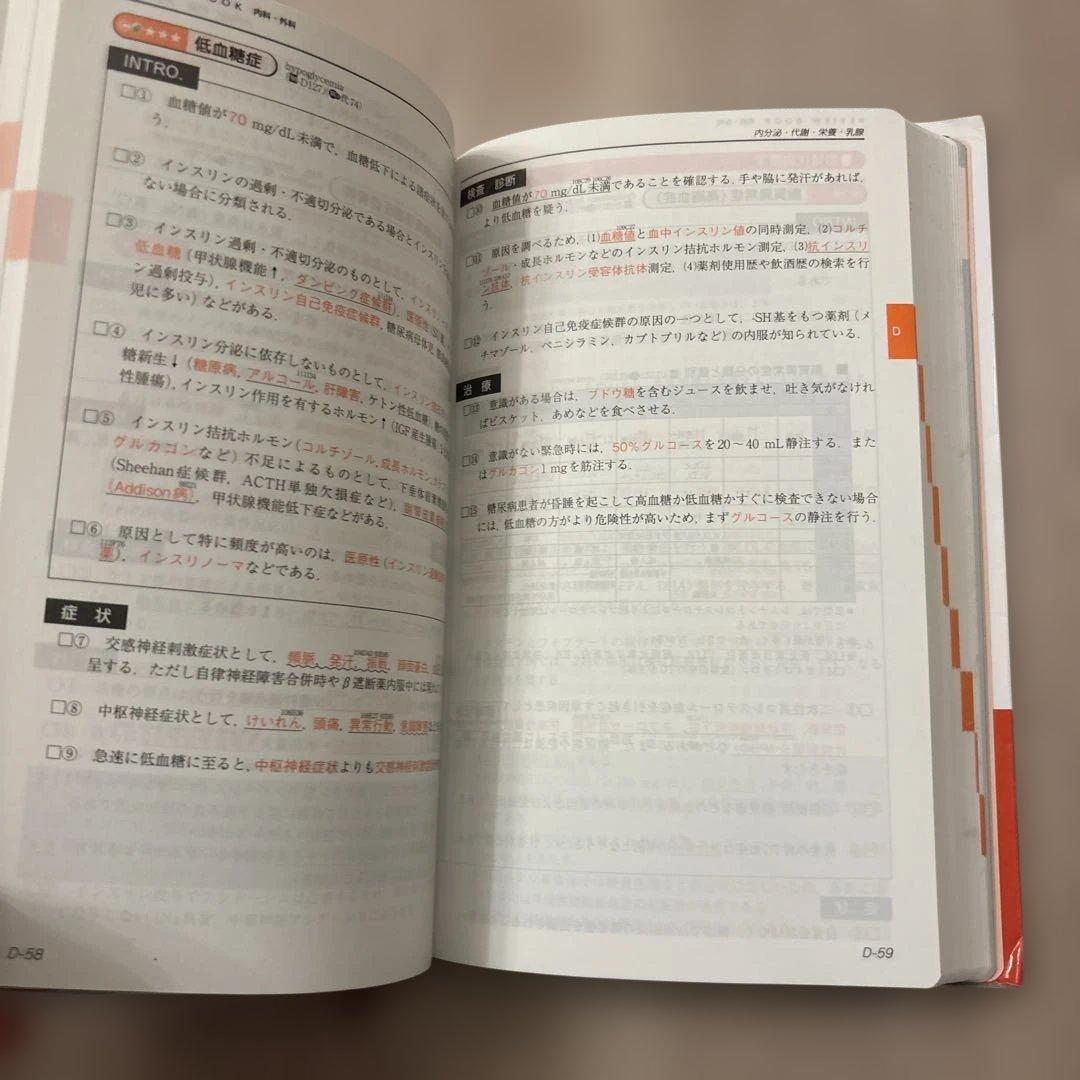 OOK 内科・外科
低血糖症
hypoglycemia
D127)(代74)
INTRO.
□① 血糖値が70 mg/dL未満で，血糖低下による
う．
□② インスリンの過剰・不適切分泌である場合とインス
ない場合に分類される．
□③ インスリン過剰・不適切分泌のものとして，インス
低血糖（甲状腺機能↑，ダンピング症候群），医原性
ン過剰投与），インスリン自己免疫症候群，糖尿病母体児
児に多い）などがある．
□④ インスリン分泌に依存しないものとして，インス
糖新生↓（糖原病，アルコール，肝障害，ケトン性低血糖），
性腫瘍），インスリン作用を有するホルモン↑（IGF産生腫瘍
□⑤ インスリン拮抗ホルモン（コルチゾール，成長ホルモン，
グルカゴンなど）不足によるものとして，下垂体
（Sheehan症候群，ACTH単独欠損症など），副腎
（Addison病），甲状腺機能低下症などがある．
□⑥ 原因として特に頻度が高いのは，医原性（インスリン
薬），インスリノーマなどである．
症 状
□⑦ 交感神経刺激症状として，頻脈，発汗，振戦，顔面蒼白，
呈する．ただし自律神経障害合併時やβ遮断薬内服中には
□⑧ 中枢神経症状として，けいれん，頭痛，異常行動，意識障害
□⑨ 急速に低血糖に至ると，中枢神経症状よりも交感神経刺激症状
D-58
内分泌・代謝・栄養・乳腺
検査 診断
□⑩ 血糖値が70 mg/dL未満であることを確認する．手や脇に発汗があれば，
より低血糖を疑う．
□⑪ 原因を調べるため，(1)血糖値と血中インスリン値の同時測定，(2)コルチ
ゾール・成長ホルモンなどのインスリン拮抗ホルモン測定，(3)抗インスリ
ン抗体，抗インスリン受容体抗体測定，(4)薬剤使用歴や飲酒歴の検索を行
う．
□⑫ インスリン自己免疫症候群の原因の一つとして，-SH基をもつ薬剤（メ
チマゾール，ペニシラミン，カプトプリルなど）の内服が知られている．
D
治 療
□⑬ 意識がある場合は，ブドウ糖を含むジュースを飲ませ，吐き気がなけれ
ばビスケット，あめなどを食べさせる．
□⑭ 意識がない緊急時には，50％グルコースを20～40 mL静注する．また
はグルカゴン1 mgを筋注する．
□⑮ 糖尿病患者が昏睡を起こして高血糖か低血糖かすぐに検査できない場合
には，低血糖の方がより危険性が高いため，まずグルコースの静注を行う．
D-59